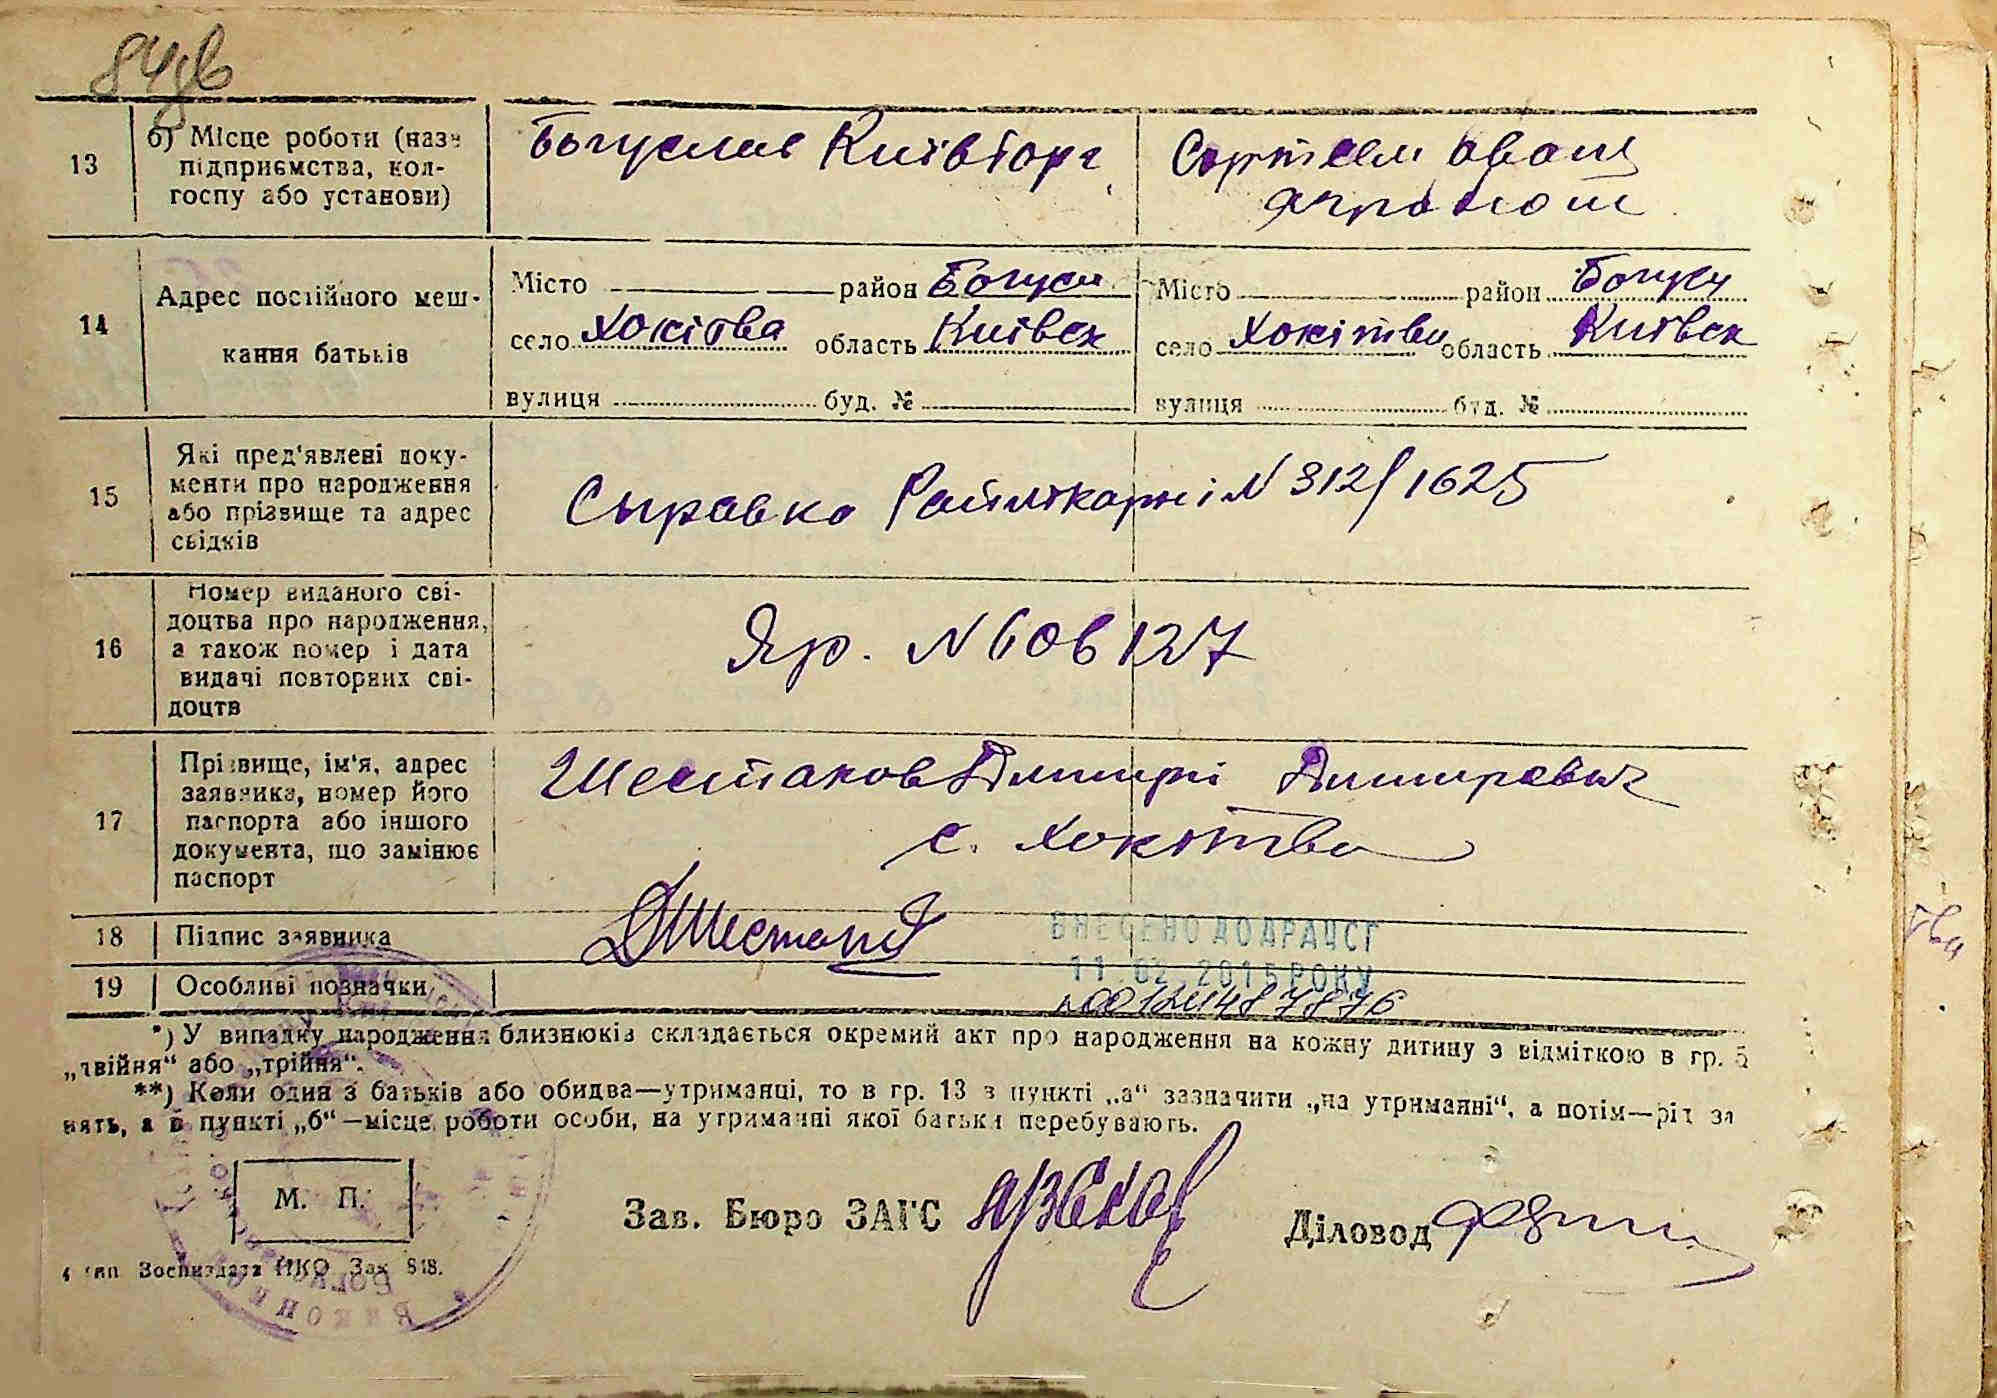 84зв
13
б) Місце роботи (назв
підприємства, кол-
госпу або установи)
Богуслав Київторг
Сортсем овощ
14
Адрес постійного меш-
кання батьків
Місто район Богусл
село Хохітва область Київск
вулиця буд. №
Місто район Богусл
село Хохітва область Київск
вулиця буд. №
15
Які пред'явлені доку-
менти про народження
або прізвище та адрес
свідків
Справка Райлікарні N 312/1625
16
Номер виданого сві-
доцтва про народження,
а також номер і дата
видачі повторних сві-
доцтв
Яр. N 606127
17
Прізвище, ім'я, адрес
заявника, номер його
паспорта або іншого
документа, що замінює
паспорт
Шестаков Дмитрі Дмитрович
с. Хохітва
18
Підпис заявника
ДШестаков
ВНЕСЕНО ДО ДРАЦСГ
11 02 2015 РОКУ
19
Особливі позначки
№00124487876
*) У випадку народження близнюків складається окремий акт про народження на кожну дитину з відміткою в гр. 5
„двійня“ або „трійня“.
**) Коли один з батьків або обидва—утриманці, то в гр. 13 в пункті „а“ зазначити „на утриманні“, а потім—рід за
нять, а в пункті „б“—місце роботи особи, на утриманні якої батьки перебувають.
М. П.
Зав. Бюро ЗАГС
Діловод
4 тип Воениздата НКО Зак 818.